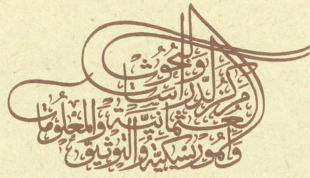 مركز الدراسات والبحوث
العثمانية والموريسكية والتوثيق والمعلومات